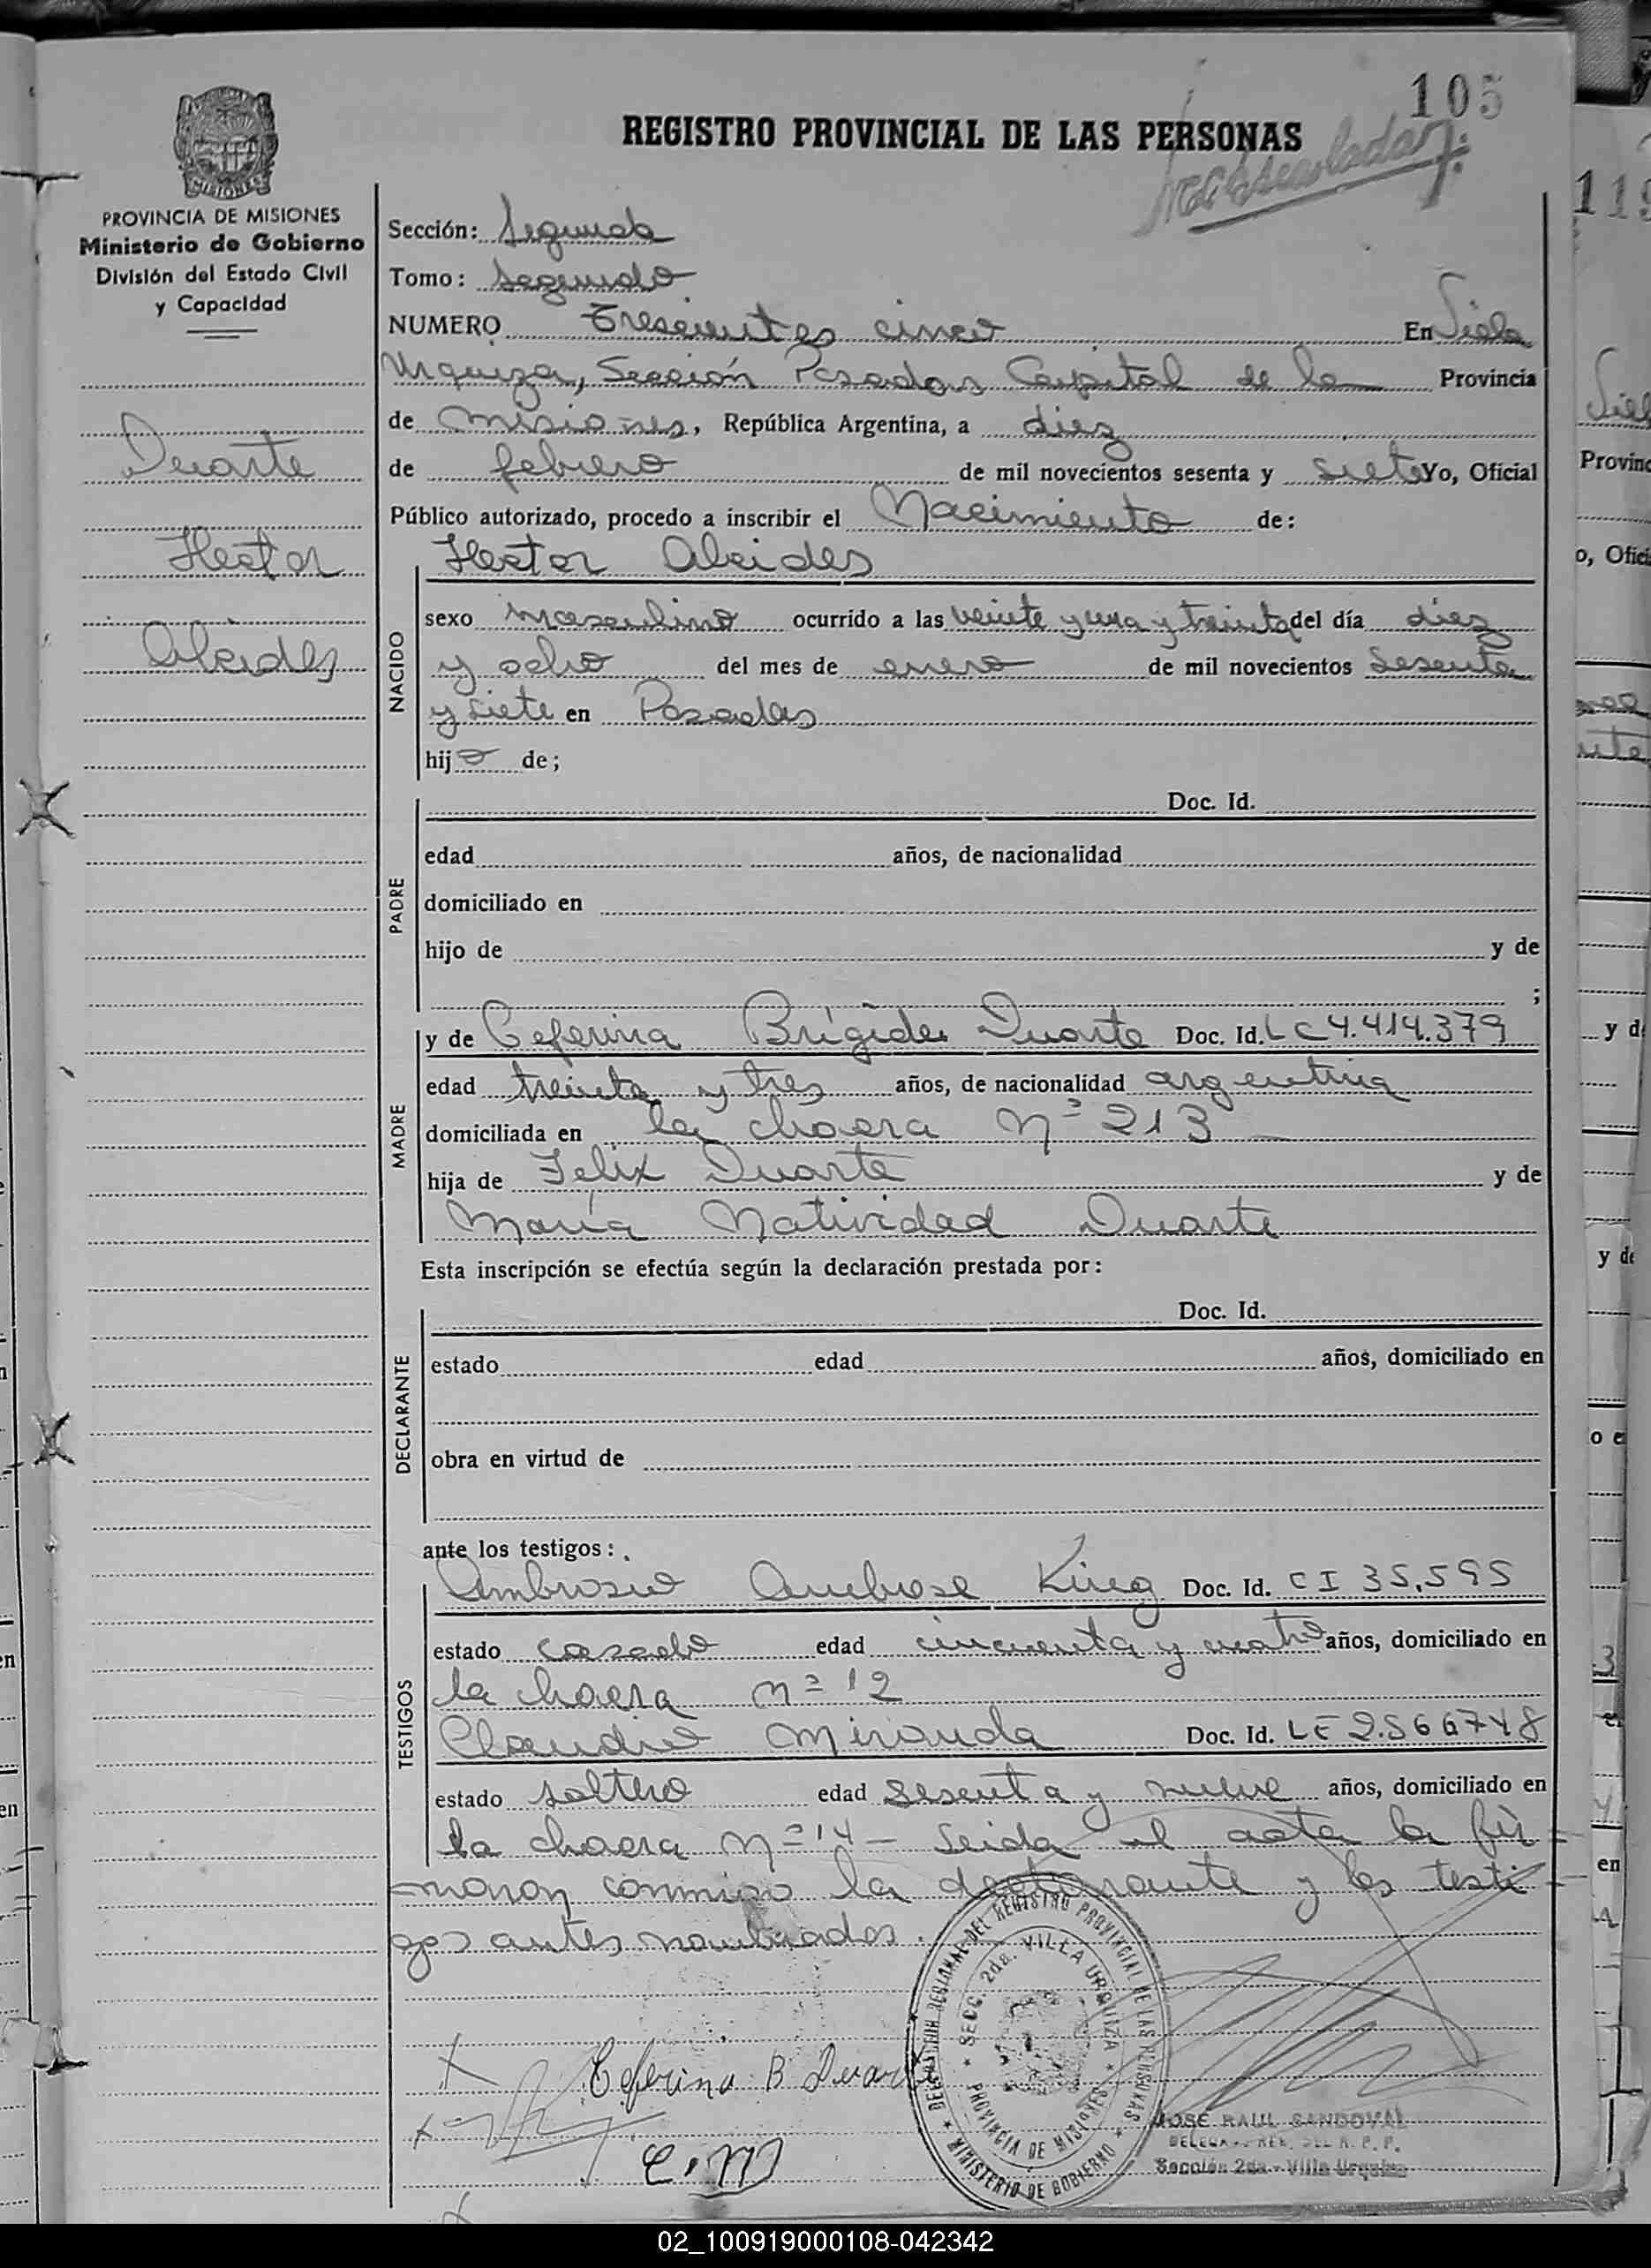 105
REGISTRO PROVINCIAL DE LAS PERSONAS
MISIONES
PROVINCIA DE MISIONES
Ministerio de Gobierno
División del Estado Civil
y Capacidad
Duarte
Hector
Alcides
Sección: Segunda
Tomo: Segundo
NUMERO Trescientos cinco En Villa
Urquiza, Sección Posadas Capital de la Provincia
de Misiones, República Argentina, a diez
de febrero de mil novecientos sesenta y siete Yo, Oficial
Público autorizado, procedo a inscribir el Nacimiento de:
Hector Alcides
NACIDO
sexo masculino ocurrido a las veinte y una y treinta del día diez
y ocho del mes de enero de mil novecientos sesenta
y siete en Posadas
hijo de;
PADRE
Doc. Id.
edad años, de nacionalidad
domiciliado en
hijo de y de
;
MADRE
y de Ceferina Brígida Duarte Doc. Id. LC 4.414.379
edad treinta y tres años, de nacionalidad argentina
domiciliada en la chacra nº 213
hija de Felix Duarte y de
María Natividad Duarte
Esta inscripción se efectúa según la declaración prestada por:
DECLARANTE
Doc. Id.
estado edad años, domiciliado en
obra en virtud de
ante los testigos:
TESTIGOS
Ambrosio Ambrose King Doc. Id. CI 35.595
estado casado edad cincuenta y cuatro años, domiciliado en
la chacra nº 12
Claudio Miranda Doc. Id. LE 2.566748
estado soltero edad sesenta y nueve años, domiciliado en
la chacra nº 14 - Leida el acta la fir
maron conmigo la declarante y los testi
gos antes nombrados.
Ceferina B Duarte
C. M
DELEGACION REGIONAL DEL REGISTRO PROVINCIAL DE LAS PERSONAS
MINISTERIO DE GOBIERNO
SECC. 2da. VILLA URQUIZA
PROVINCIA DE MISIONES
JOSE RAUL SANDOVAL
DELEGADO REG. DEL R. P. P.
Sección 2da - Villa Urquiza
02_100919000108-042342